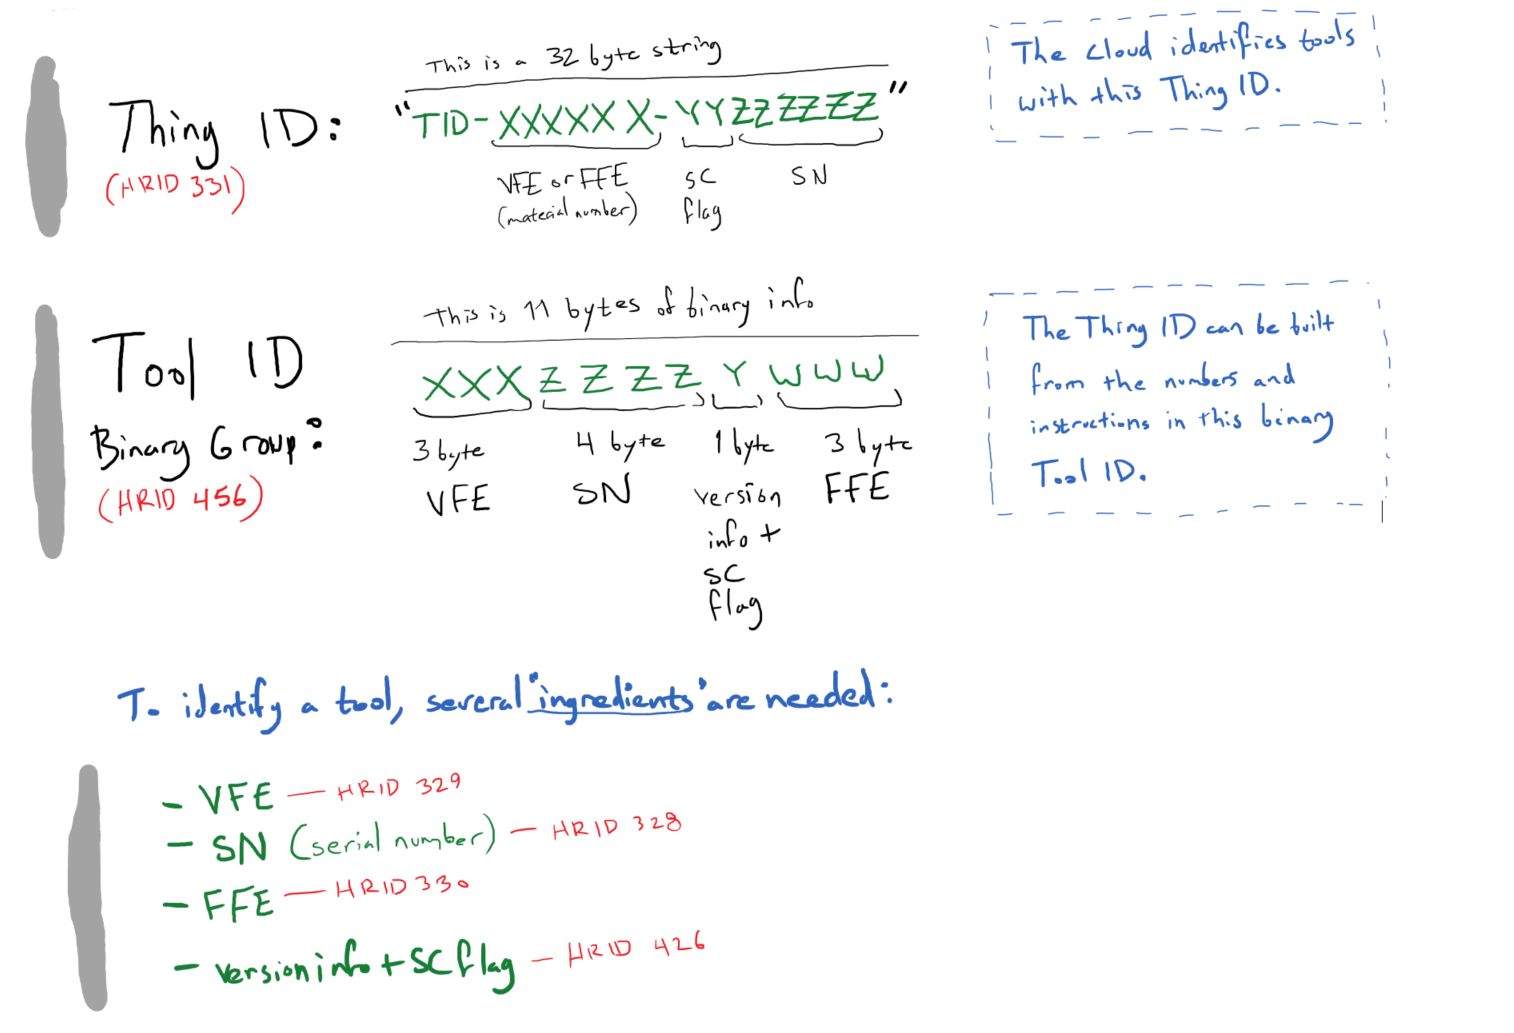 This is a 32 byte string
Thing ID: "TID-XXXXXX-YYZZZZZZ"
(HRID 331)
VFE or FFE
(material number)
SC
flag
SN
The cloud identifies tools
with this Thing ID.
This is 11 bytes of binary info
Tool ID
Binary Group:
(HRID 456)
XXX ZZZZ Y WWW
3 byte
VFE
4 byte
SN
1 byte
version
info +
SC
flag
3 byte
FFE
The Thing ID can be built
from the numbers and
instructions in this binary
Tool ID.
To identify a tool, several "ingredients" are needed:
- VFE — HRID 329
- SN (serial number) — HRID 328
- FFE — HRID 330
- version info + SC flag — HRID 426